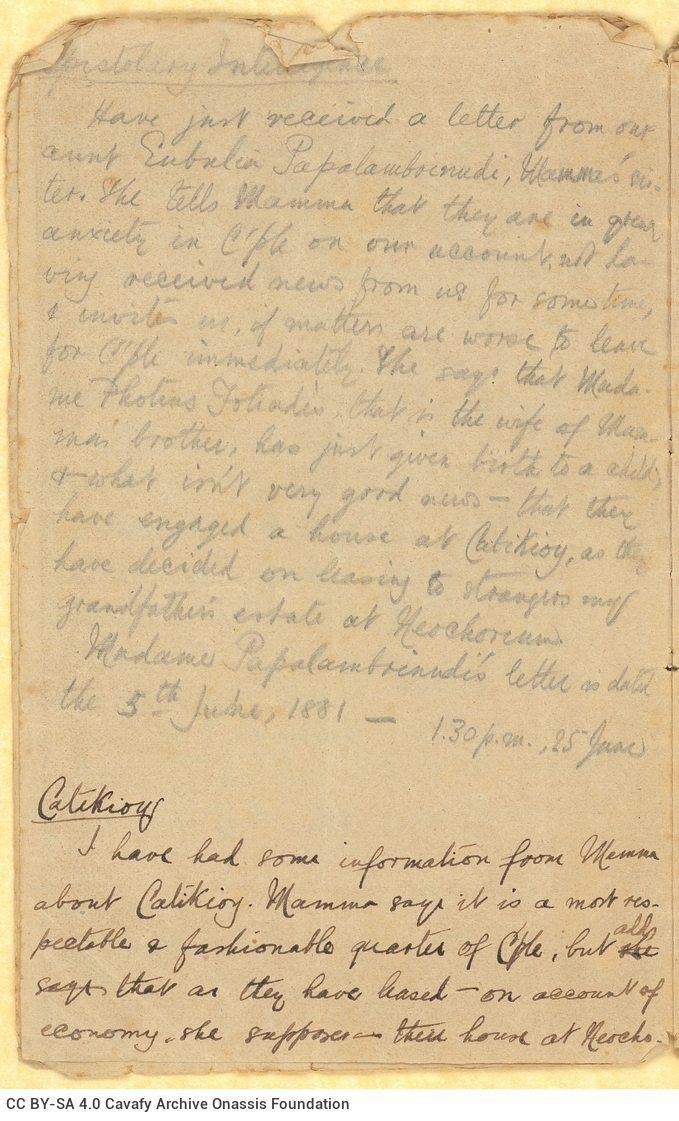 Epistolary Intelligence
Have just received a letter from our
aunt Eubulia Papalambrinudi, Mamma's sis-
ter. She tells Mamma that they are in great
anxiety in C'ple on our account, not ha-
ving received news from us for some time,
& invites us, if matters are worse to leave
for C'ple immediately. She says that Mada-
me Photius Fotiadis, that is the wife of Mam-
ma's brother, has just given birth to a child;
& what isn't very good news — that they
have engaged a house at Catikioy, as they
have decided on leasing to strangers my
grandfather's estate at Neochorium.
Madame Papalambrinudi's letter is dated
the 5th June, 1881 —
1.30 p.m., 25 June
Catikioy
I have had some information from Mamma
about Catikioy. Mamma says it is a most res-
pectable & fashionable quarter of C'ple, but she add
says that as they have leased — on account of
economy, she supposes — their house at Neocho-
CC BY-SA 4.0 Cavafy Archive Onassis Foundation